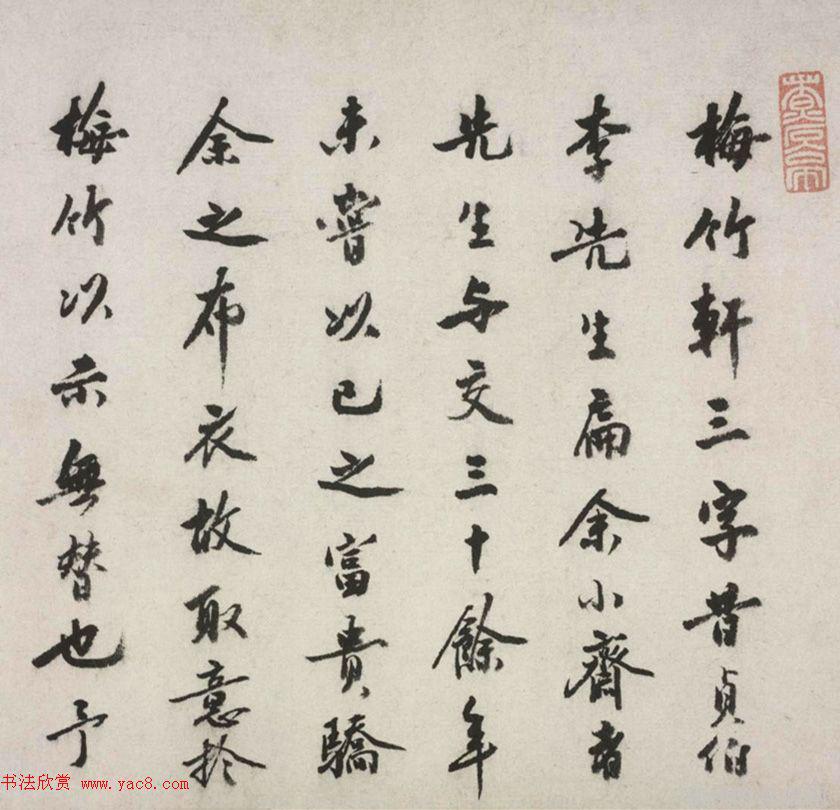 梅竹軒三字昔貞伯
李先生扁余小齋者
先生与交三十餘年
未嘗以己之富貴驕
余之布衣故取意於
梅竹以示無替也予
书法欣赏 www.yac8.com